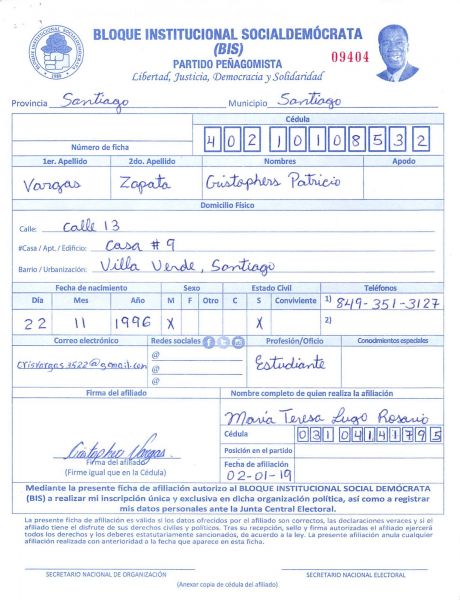 BLOQUE INSTITUCIONAL SOCIALDEMÓCRATA
(BIS)
PARTIDO PEÑAGOMISTA
09404
Libertad, Justicia, Democracia y Solidaridad
BLOQUE INSTITUCIONAL SOCIALDEMÓCRATA
Provincia Santiago Municipio Santiago
Cédula
Número de ficha 402 10108532
1er. Apellido 2do. Apellido Nombres Apodo
Vargas Zapata Cristophers Patricio
Domicilio Físico
Calle: Calle 13
#Casa / Apt. / Edificio: Casa # 9
Barrio / Urbanización: Villa Verde, Santiago
Fecha de nacimiento Sexo Estado Civil Teléfonos
Día Mes Año M F Otro C S Conviviente 1) 849-351-3127
22 11 1996 X X 2)
Correo electrónico Redes sociales Profesión/Oficio Conodmientos especiales
@
crisvargas3522@gmail.com @ Estudiante
@
Firma del afiliado Nombre completo de quien realiza la afiliación
María Teresa Lugo Rosario
Cédula 03104141795
Posición en el partido
Cristophers Vargas
Firma del afiliado Fecha de afiliación
(Firme igual que en la Cédula) 02-01-19
Mediante la presente ficha de afiliación autorizo al BLOQUE INSTITUCIONAL SOCIAL DEMÓCRATA
(BIS) a realizar mi inscripción única y exclusiva en dicha organización política, así como a registrar
mis datos personales ante la Junta Central Electoral.
La presente ficha de afiliación es válida si los datos ofrecidos por el afiliado son correctos, las declaraciones veraces y si el
afiliado tiene el disfrute de sus derechos civiles y políticos. Tras su recepción, sello y firma autorizadas el afiliado ejercerá
todos los derechos y los deberes estatutariamente sancionados, de acuerdo a la ley. La presente afiliación anula cualquier
afiliación realizada con anterioridad a la fecha que aparece en esta ficha.
SECRETARIO NACIONAL DE ORGANIZACIÓN SECRETARIO NACIONAL ELECTORAL
(Anexar copia de cédula del afiliado).